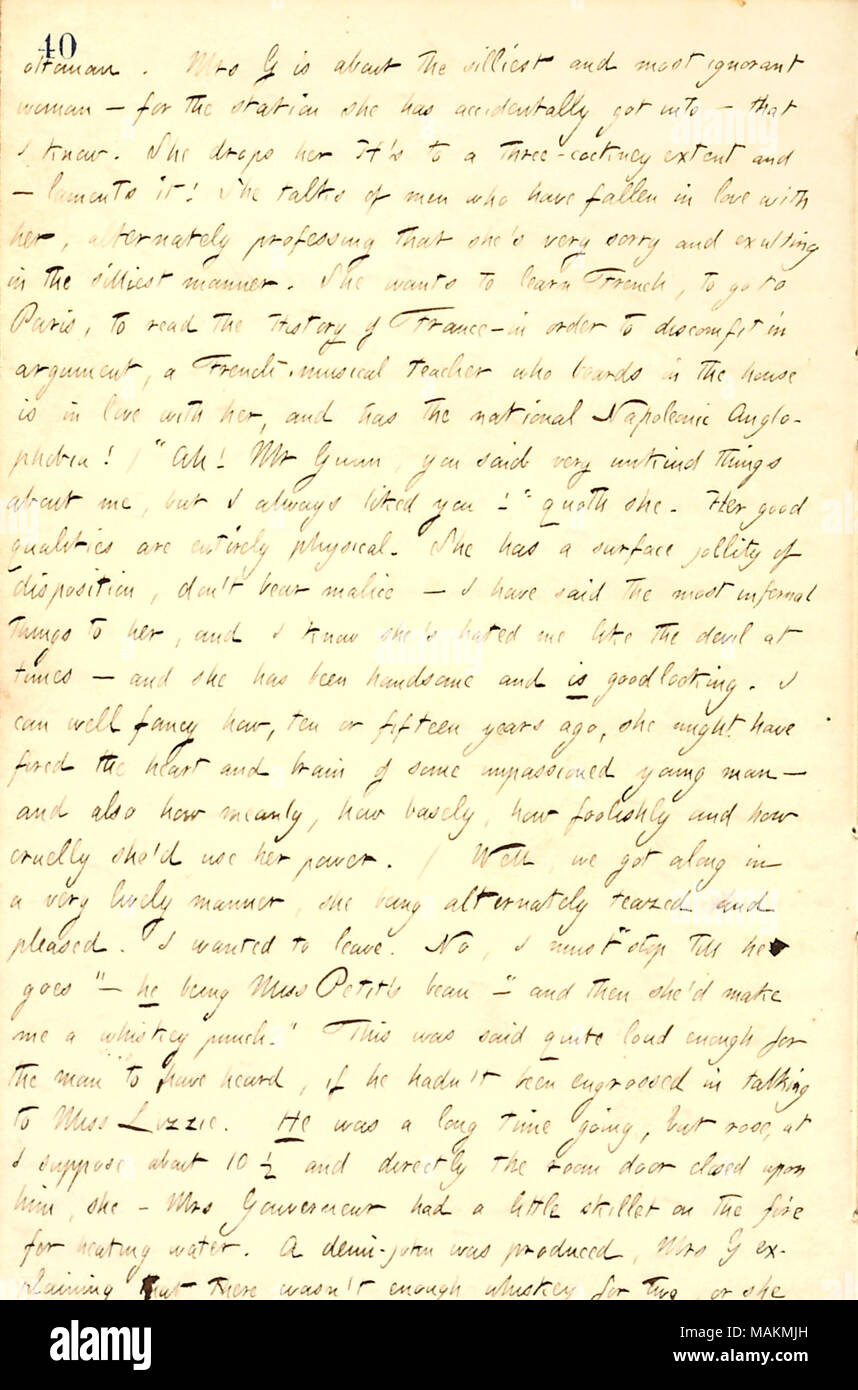 40
ottoman. Mrs G is about the silliest and most ignorant
woman — for the station she has accidentally got into — that
I know. She drops her H's to a three-cockney extent and
— laments it! She talks of men who have fallen in love with
her, alternately professing that she's very sorry and exulting
in the silliest manner. She wants to learn French, to go to
Paris, to read the History of France — in order to discomfit in
argument, a French musical teacher who boards in the house
is in love with her, and has the national Napoleonic Anglo-
phobia! / "Ah! Mr Gunn, you said very unkind things
about me, but I always liked you!" quoth she. Her good
qualities are entirely physical. She has a surface jollity of
disposition, don't bear malice — I have said the most infernal
things to her, and I know she's hated me like the devil at
times — and she has been handsome and is goodlooking. I
can well fancy how, ten or fifteen years ago, she might have
fired the heart and brain of some impassioned young man —
and also how meanly, how basely, how foolishly and how
cruelly she'd use her power. / Well, we got along in
a very lively manner, she being alternately teazed and
pleased. I wanted to leave. No, I must "stop till he
goes" — he being Miss Petit's beau — "and then she'd make
me a whiskey punch." This was said quite loud enough for
the man to have heard, if he hadn't been engrossed in talking
to Miss Lizzie. He was a long time going, but rose, at
I suppose about 10 ½ and directly the room door closed upon
him, she – Mrs Gouverneur had a little skillet on the fire
for heating water. A demi-john was produced, Mrs G ex-
plaining that there wasn't enough whiskey for two, or she
alamy
Image ID: MAKMJH
www.alamy.com